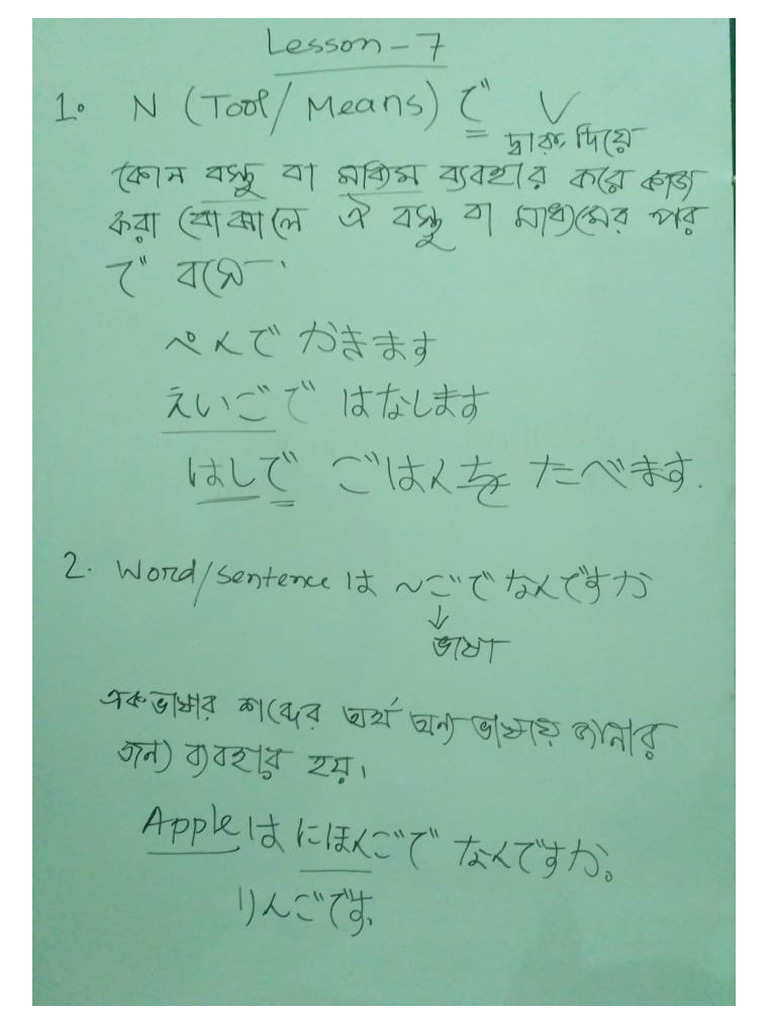 Lesson - 7
1. N (Tool/Means) で V
দ্বারা দিয়ে
কোন বস্তু বা মাধ্যম ব্যবহার করে কাজ
করা বোঝালে ঐ বস্তু বা মাধ্যমের পর
で বসে।
ぺんで かきます
えいごで はなします
はしで ごはんを たべます.
2. Word/Sentence は ～ごで なんですか
↓
ভাষা
এক ভাষার শব্দের অর্থ অন্য ভাষায় জানার
জন্য ব্যবহার হয়।
Apple は にほんごで なんですか。
りんごです。